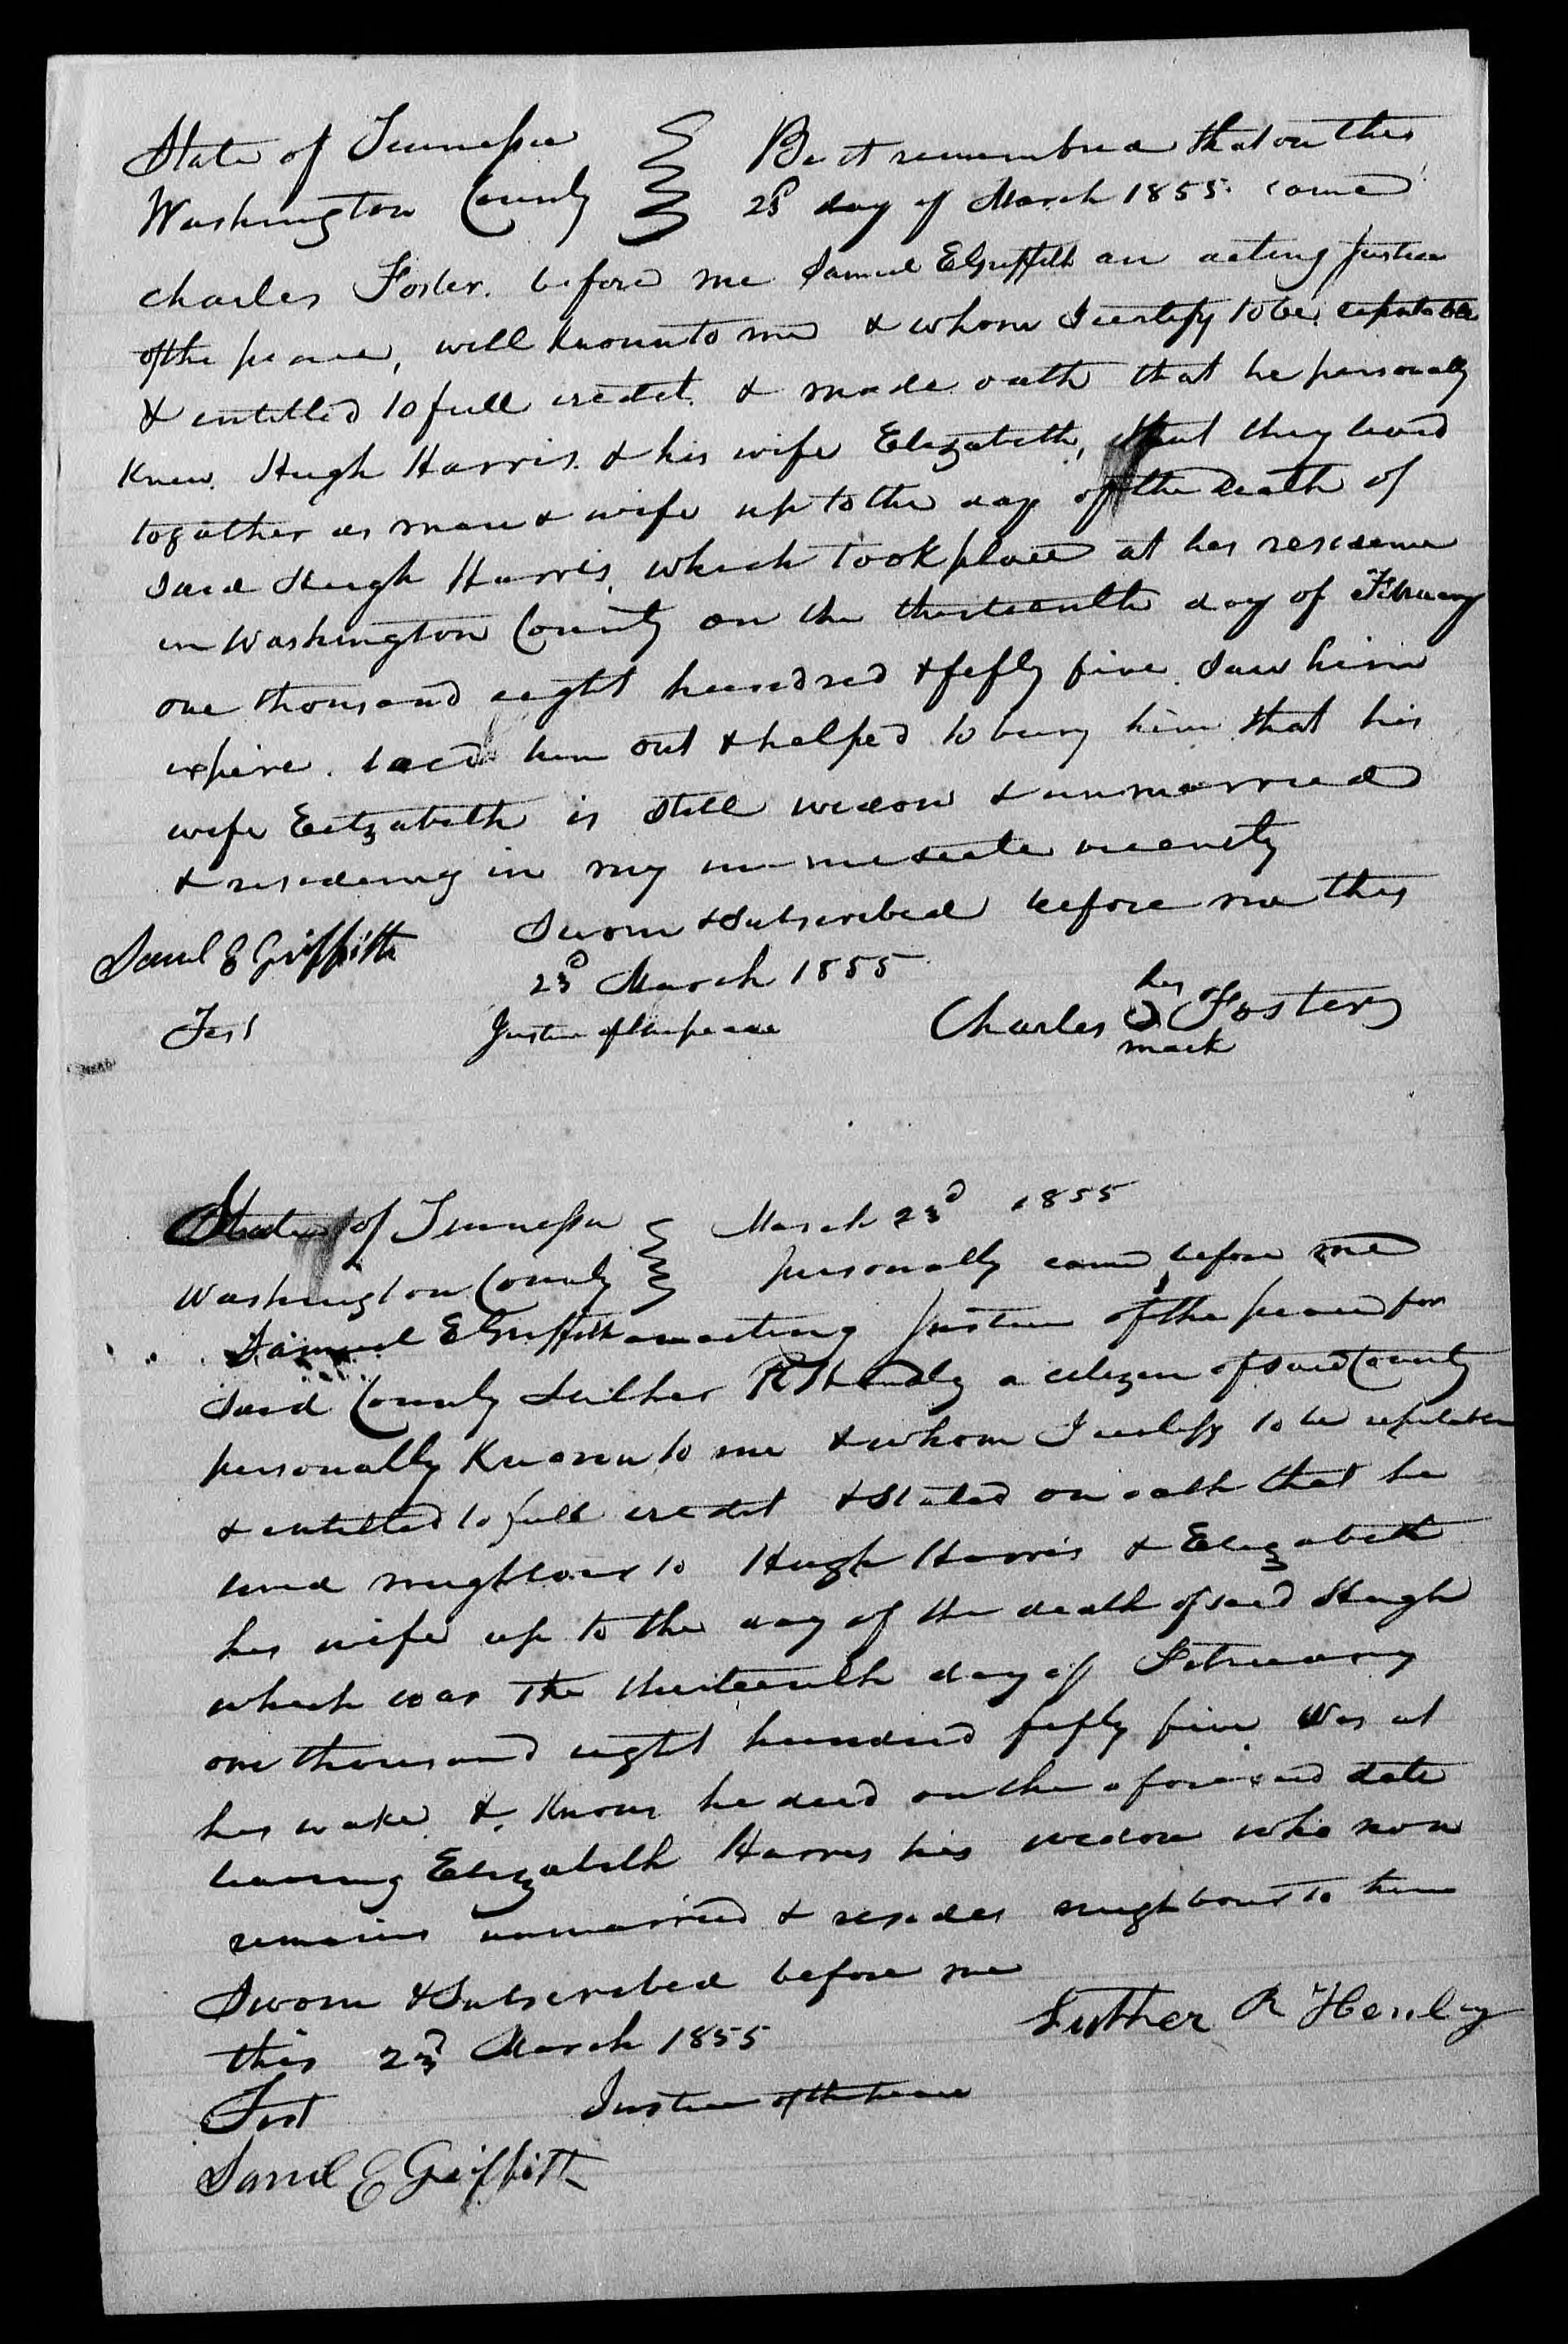 State of Tennessee Be it remembered that on this
Washington County 23d day of March 1855 came
Charles Foster, before me Samuel E Griffith an acting Justice
of the peace, well known to me & whom I certify to be reputable
& entitled to full credit & made oath that he personally
knew Hugh Harris & his wife Elizabeth, that they lived
together as man & wife up to the day of the death of
said Hugh Harris, which took place at his residence
in Washington County on the thirteenth day of February
one thousand eight hundred & fifty five. Saw him
expire. laid him out & helped to bury him that his
wife Elizabeth is still widow & unmarried
& resideing in my immediate vicenity
Sworn & Subscribed before me this
Saml E Griffith 23d March 1855
his
Test Justice of the peace Charles Foster
mark
State of Tennessee March 23d 1855
Washington County personally came before me
Samuel E Griffith an acting Justice of the peace for
said County Luther R Henly a citizen of said County
personally known to me & whom I certify to be reputable
& entitled to full credit & stated on oath that he
lived neighbour to Hugh Harris & Elizabeth
his wife up to the day of the death of said Hugh
which was the thirteenth day of February
one thousand eight hundred fifty five was at
his wake & knows he died on the aforesaid date
leaving Elizabeth Harris his widow who now
remains unmarried & resides neighbour to him
Sworn & Subscribed before me
this 23d March 1855 Luther R Henley
Test Justice of the peace
Saml E Griffith